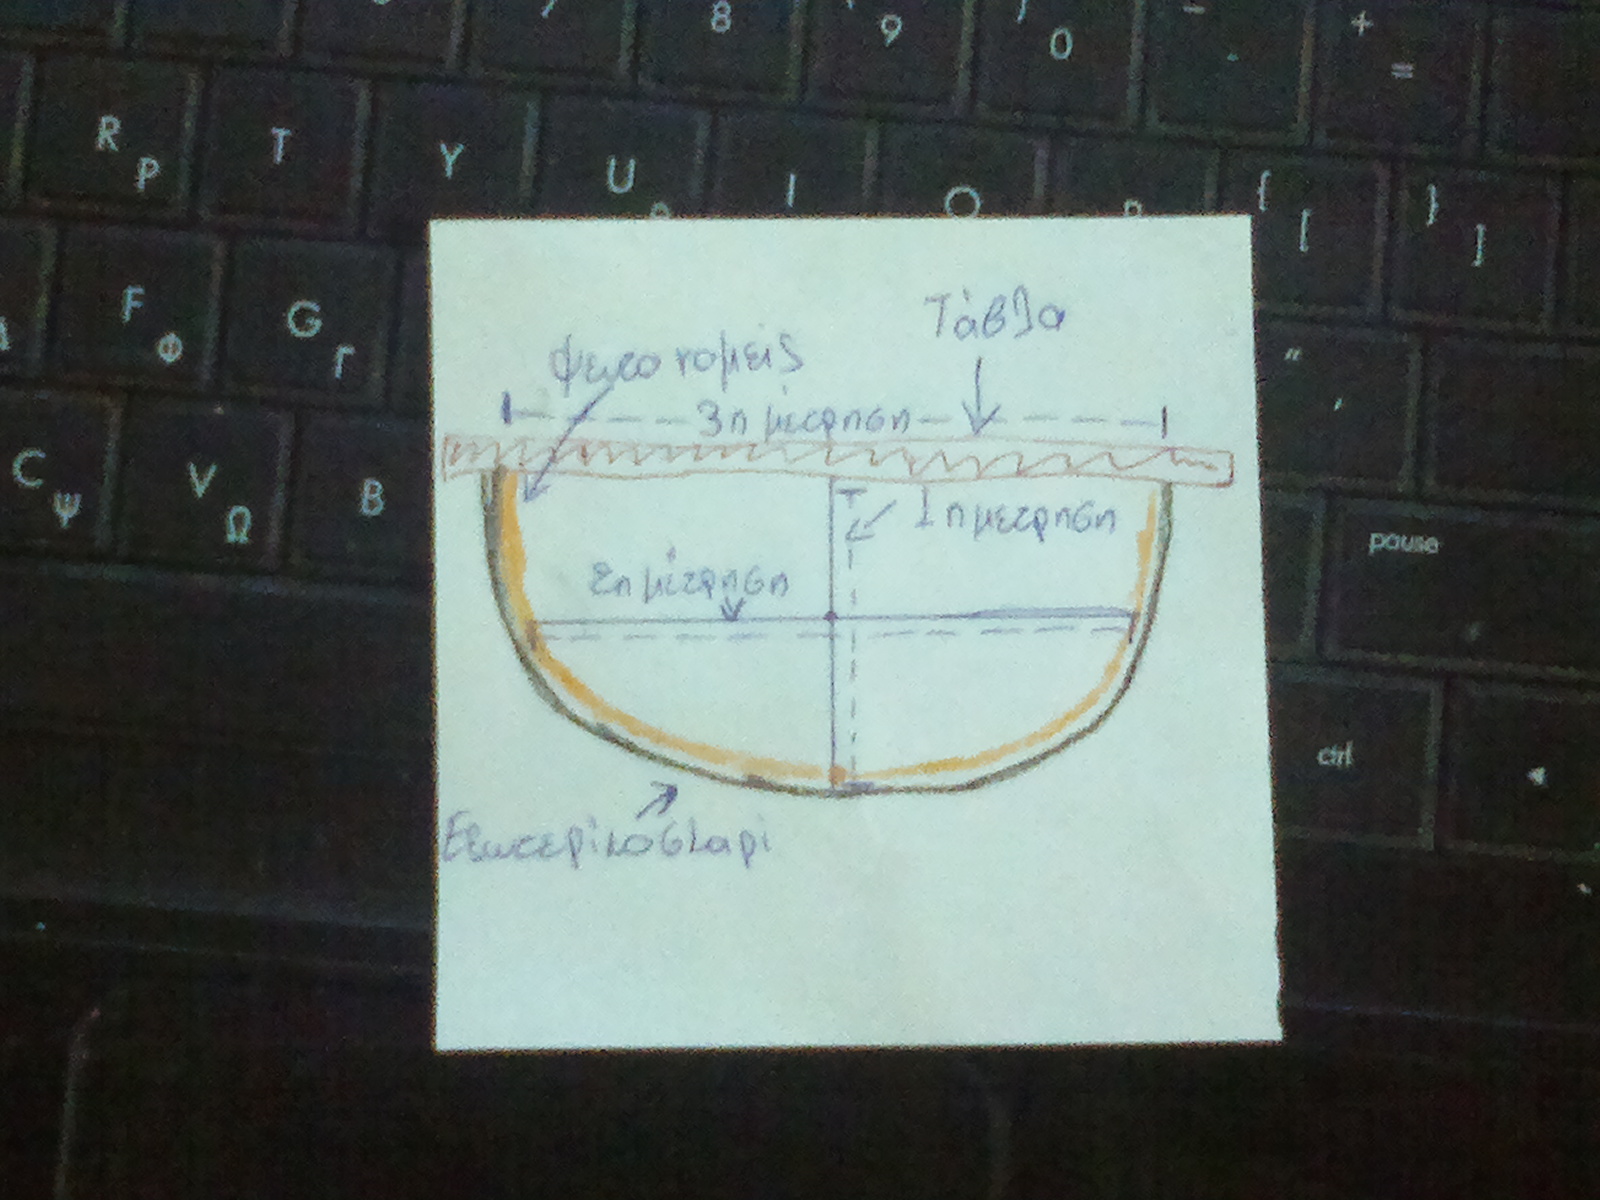 8 9 0 - + =
R P T Y U I O P { [ } ]
F Φ G Γ "
C Ψ V Ω B
pause
ctrl
Τάβλα
ψευτο νομείς
3η μέτρηση
1η μετρηση
2η μέτρηση
Εξωτερικο σκαρί